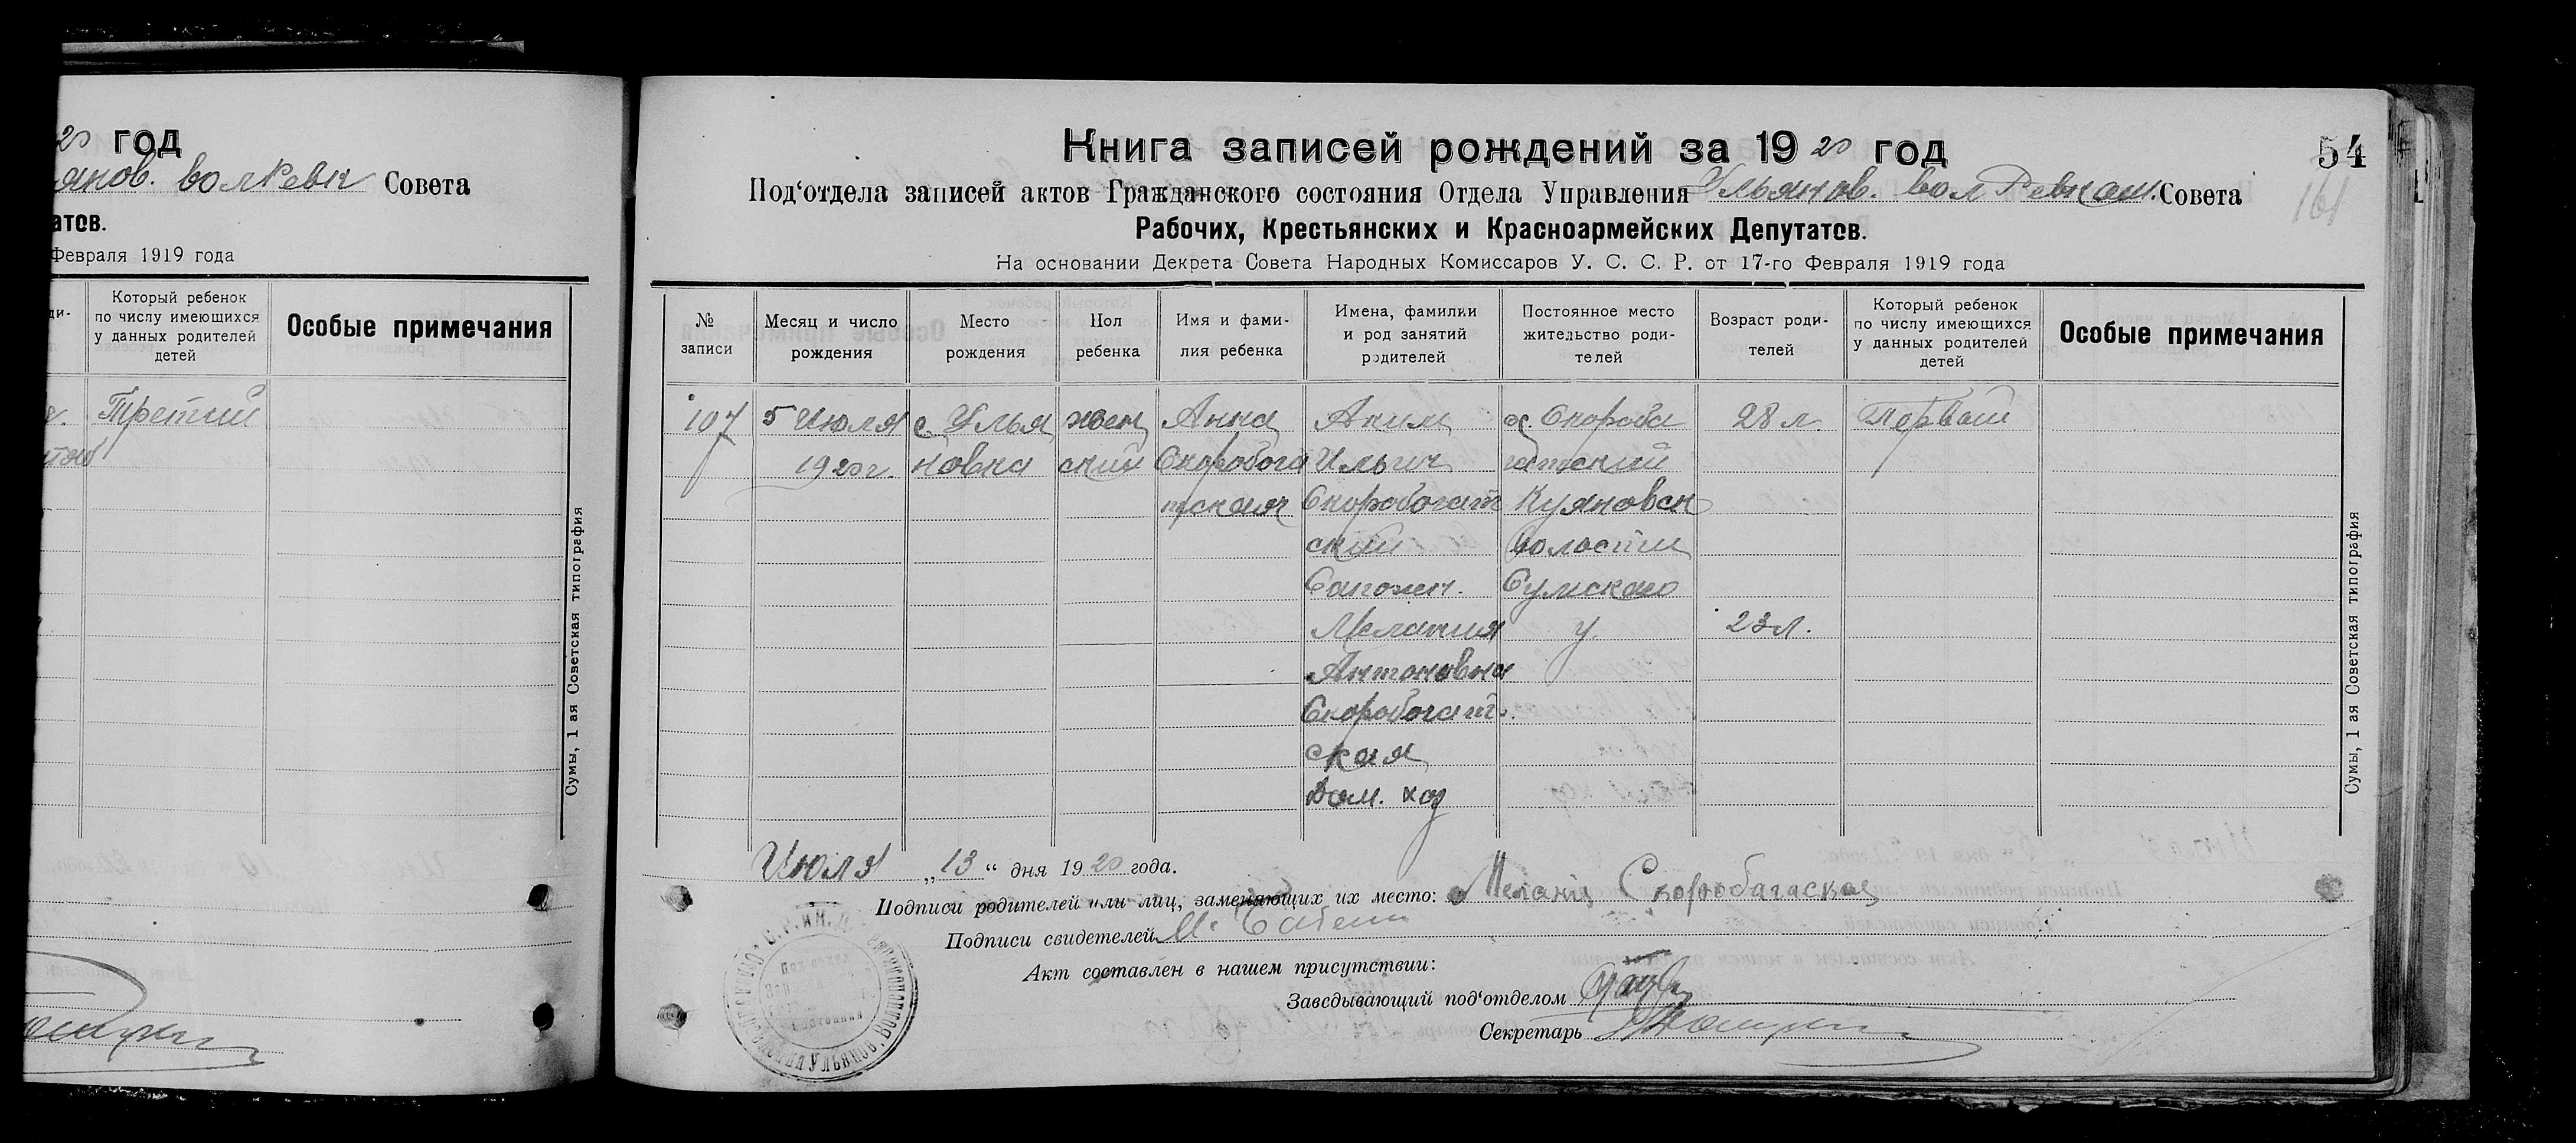 20 год
янов. волРевк Совета
атов.
Февраля 1919 года
ди-
Который ребенок
по числу имеющихся
у данных родителей
детей
Особые примечания
Третий
Сумы, 1 ая Советская типография
Книга записей рождений за 1920 год
54
Под‘отдела записей актов Гражданского состояния Отдела Управления Ульянов. вол Ревком. Совета
161
Рабочих, Крестьянских и Красноармейских Депутатов.
На основании Декрета Совета Народных Комиссаров У. С. С. Р. от 17-го Февраля 1919 года
№
записи
Месяц и число
рождения
Место
рождения
Пол
ребенка
Имя и фами-
лия ребенка
Имена, фамилии
и род занятий
родителей
Постоянное место
жительство роди-
телей
Возраст роди-
телей
Который ребенок
по числу имеющихся
у данных родителей
детей
Особые примечания
107 5 Июля с. Улья жен Анна Аким х. Скороба 28 л Первый
1920 г. новка ский Скоробога Ильич гатский
тская Скоробогат Куяновск
ский волости
Сапожн. Сумскаго
Мелания у. 23 л.
Антоновна
Скоробогат.
ская
Дом. хоз
Июля „13“ дня 1920 года.
Подписи родителей или лиц, заменяющих их место: Меланія Скоробагаская
Подписи свидетелей
Акт составлен в нашем присутствии:
Заведывающий под‘отделом
Секретарь
Сумы, 1 ая Советская типография